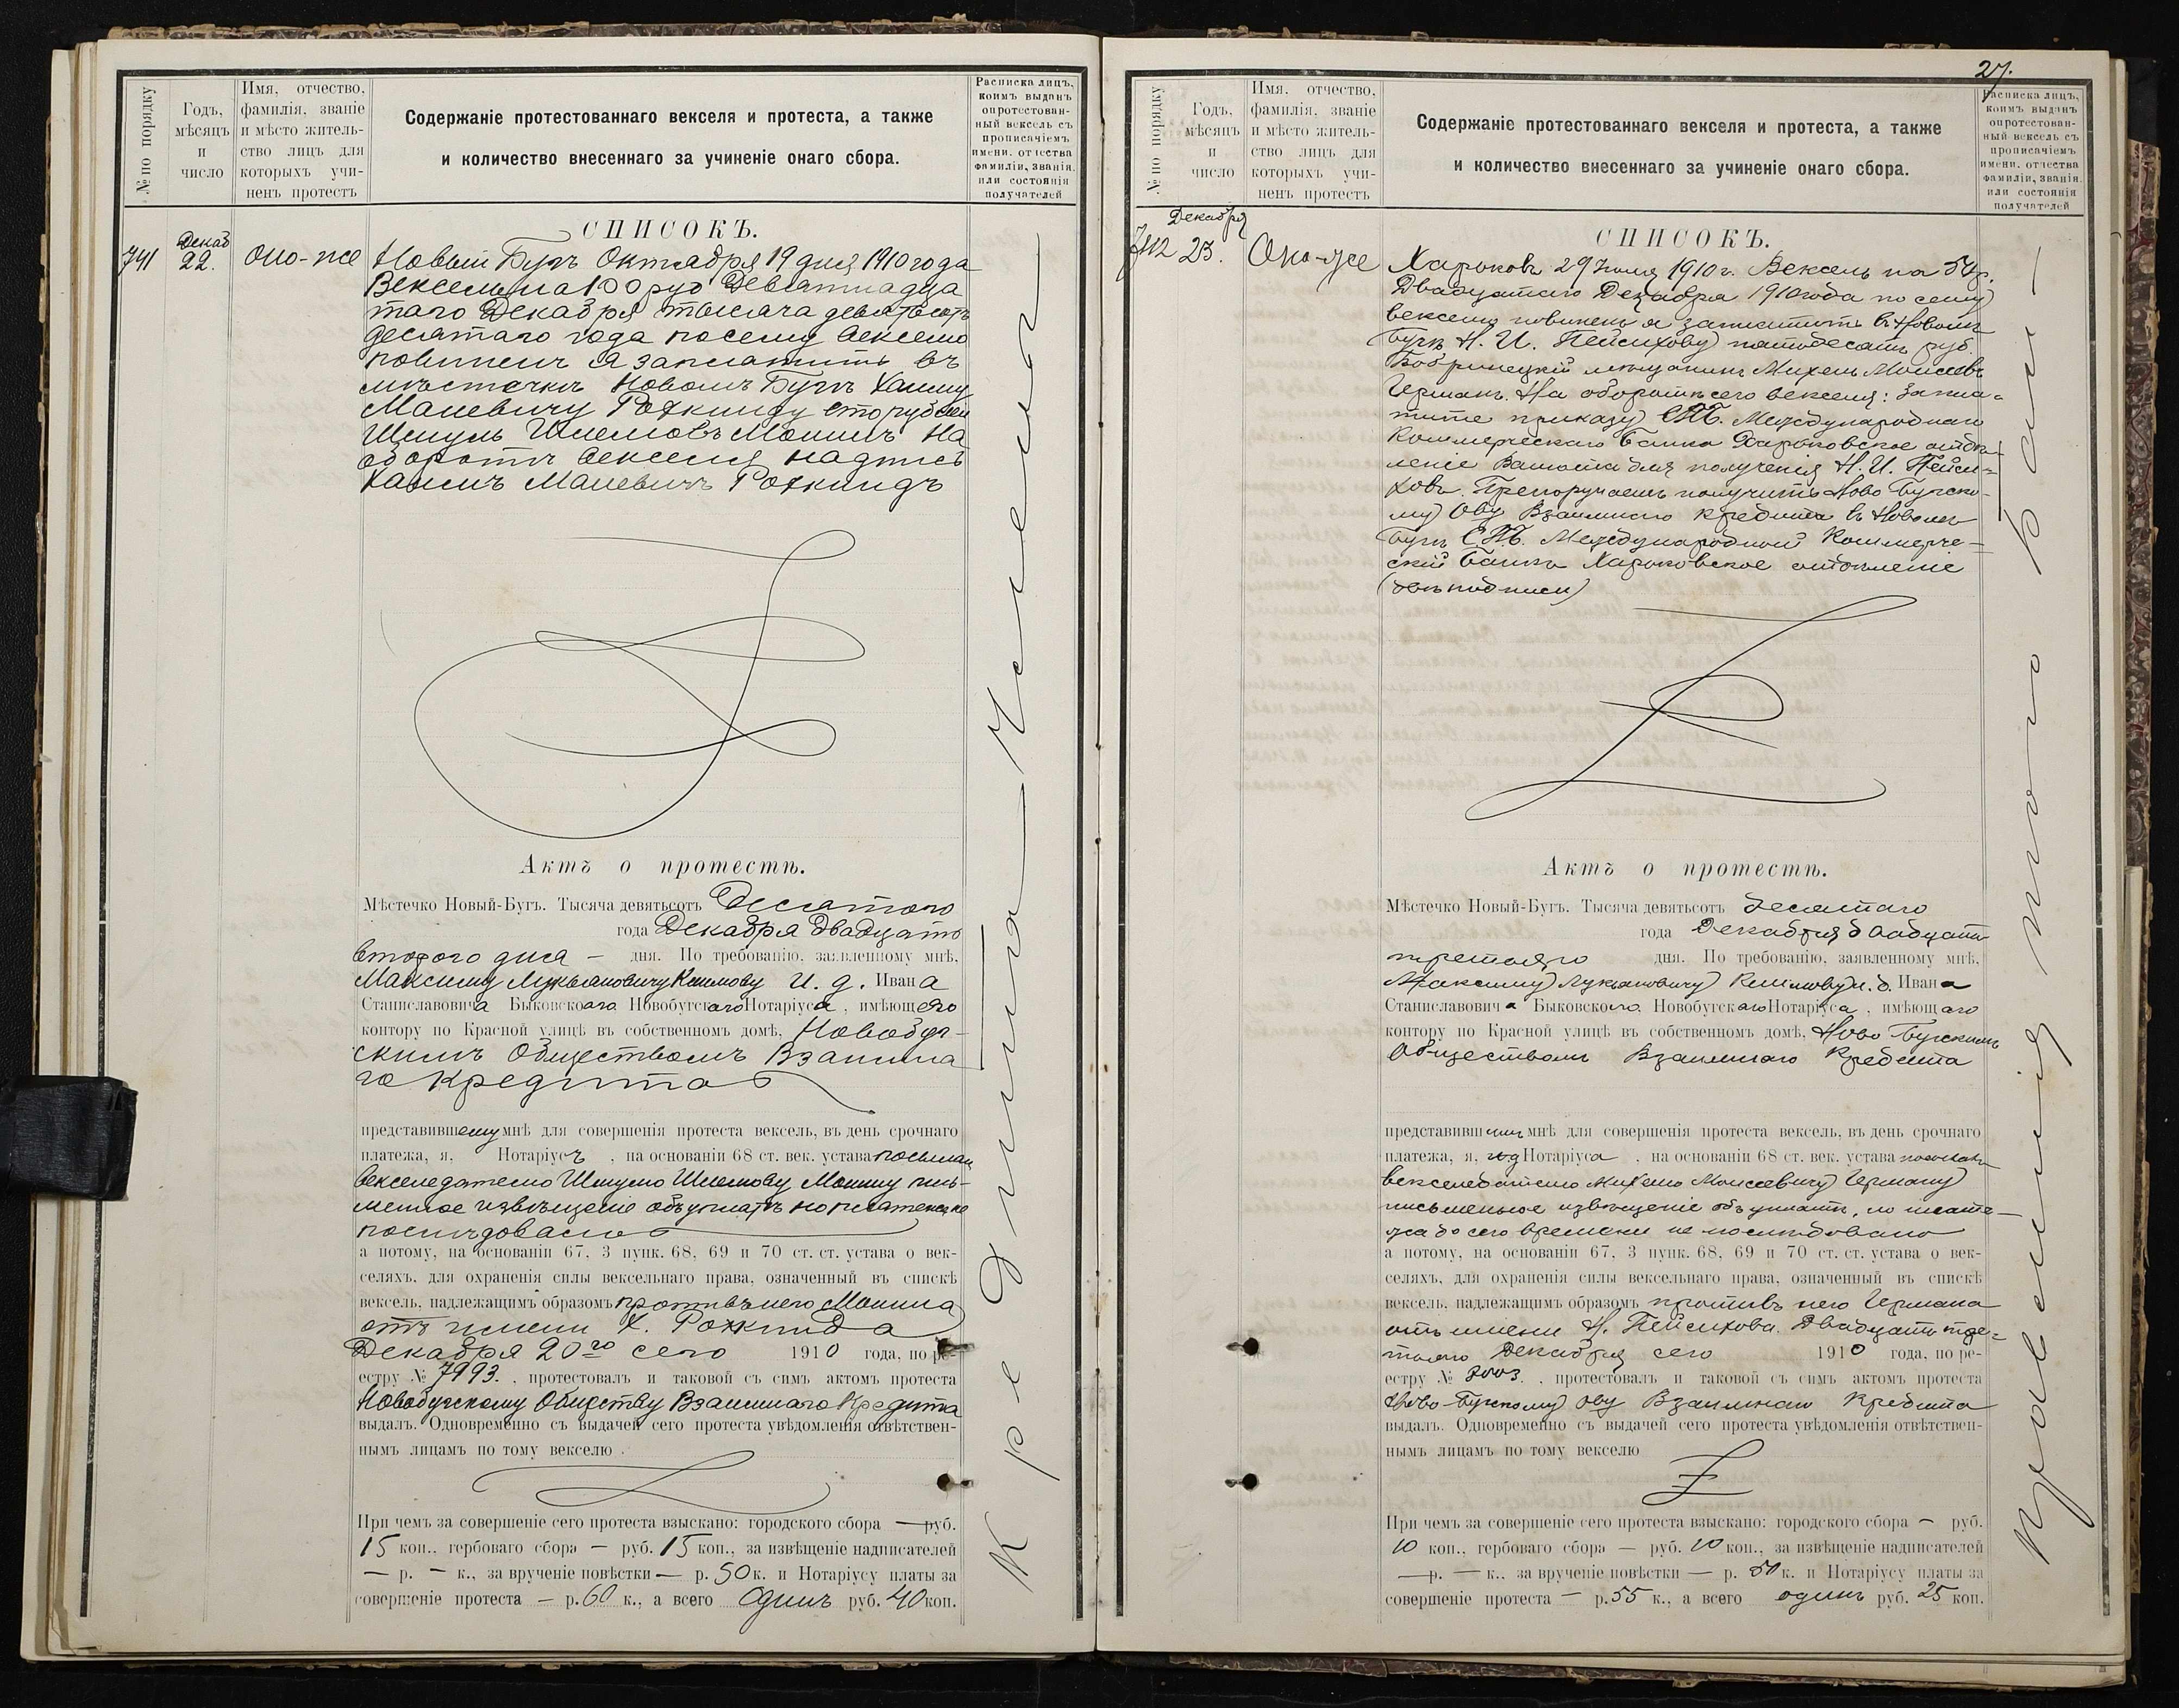 № по порядку
Годъ,
мѣсяцъ
и
число
Имя, отчество,
фамилія, званіе
и мѣсто житель-
ство лицъ для
которыхъ учи-
ненъ протестъ
Содержаніе протестованнаго векселя и протеста, а также
и количество внесеннаго за учиненіе онаго сбора.
Расписка лицъ,
коимъ выданъ
опротестован-
ный вексель съ
прописаніемъ
имени, отчества
фамиліи, званія
или состоянія
получателей
СПИСОКЪ.
741
Декаб
22.
Оно-же
Новый Бугъ Октября 19 дня 1910 года
Вексель на 100 руб Девятнадца
таго Декабря тысяча девятьсотъ
десятаго года по сему векселю
повиненъ я заплатить въ
мѣстечкѣ Новомъ Бугѣ Хаиму
Маневичу Рохкинду сто рублей
Шмуль Шлемовъ Монинъ На
оборотѣ векселя надпись
Хаимъ Маневичъ Рохкиндъ
Актъ о протестѣ.
Мѣстечко Новый-Бугъ. Тысяча девятьсотъ Десятого
года Декабря Двадцать
второго дня — дня. По требованію, заявленному мнѣ,
Максиму Лукьяновичу Климову И. д. Ивана
Станиславовича Быковскаго Новобугскаго Нотаріуса, имѣющего
контору по Красной улицѣ въ собственномъ домѣ, Новобуг-
скимъ Обществомъ Взаимна
го Кредита
представившему мнѣ для совершенія протеста вексель, въ день срочнаго
платежа, я, Нотаріусъ, на основаніи 68 ст. век. устава послалъ
векселедателю Шмулю Шлемову Монину пись-
менное извѣщеніе объ уплатѣ но платежа не
послѣдовало
а потому, на основаніи 67, 3 пунк. 68, 69 и 70 ст. ст. устава о век-
селяхъ, для охраненія силы вексельнаго права, означенный въ спискѣ
вексель, надлежащимъ образомъ противъ него Монина
отъ имени Х. Рохкинда
Декабря 20го сего 1910 года, по ре-
естру № 7993. , протестовалъ и таковой съ симъ актомъ протеста
Новобугскому Обществу Взаимнаго Кредита
выдалъ. Одновременно съ выдачей сего протеста увѣдомленія отвѣтствен-
нымъ лицамъ по тому векселю
При чемъ за совершеніе сего протеста взыскано: городского сбора — руб.
15 коп., гербоваго сбора — руб. 15 коп., за извѣщеніе надписателей
— р. — к., за врученіе повѣстки — р. 50 к. и Нотаріусу платы за
совершеніе протеста — р. 60 к., а всего Одинъ руб. 40 коп.
27.
№ по порядку
Годъ,
мѣсяцъ
и
число
Имя, отчество,
фамилія, званіе
и мѣсто житель-
ство лицъ для
которыхъ учи-
ненъ протестъ
Содержаніе протестованнаго векселя и протеста, а также
и количество внесеннаго за учиненіе онаго сбора.
Расписка лицъ,
коимъ выданъ
опротестован-
ный вексель съ
прописаніемъ
имени, отчества
фамиліи, званія,
или состоянія
получателей
СПИСОКЪ.
742
Декабря
23.
Оно-же
Харьковъ 29 Іюля 1910 г. Вексель на 50 р.
Двадцатаго Декабря 1910 года по сему
векселю повиненъ я заплатить въ Новомъ
Бугѣ Н. И. Пейсихову пятьдесятъ руб.
Бобринецкій мѣщанинъ Михель Моисеевъ
Германъ. На оборотѣ сего векселя: Запла-
тите приказу СПБ. Международнаго
Коммерческаго Банка Харьковское отдѣ-
леніе Валюта для полученія Н. И. Пейси-
ховъ. Препоручаемъ получить Ново Бугско-
му Ову Взаимнаго Кредита въ Новомъ
Бугѣ СПБ. Международной Коммерче-
скій Банкъ Харьковское отдѣленіе
(двѣ подписи)
Актъ о протестѣ.
Мѣстечко Новый-Бугъ. Тысяча девятьсотъ десятаго
года Декабря двадцать
третьяго дня. По требованію, заявленному мнѣ,
Максиму Лукьяновичу Климову и. д. Ивана
Станиславовича Быковскаго, Новобугскаго Нотаріуса, имѣющаго
контору по Красной улицѣ въ собственномъ домѣ, Ново Бугскимъ
Обществомъ Взаимнаго Кредита
представившимъ мнѣ для совершенія протеста вексель, въ день срочнаго
платежа, я, и д Нотаріуса, на основаніи 68 ст. век. устава послалъ
векселедателю Михелю Моисеевичу Герману
письменное извѣщеніе объ уплатѣ, но плате-
жа до сего времени не послѣдовало
а потому, на основаніи 67, 3 пунк. 68, 69 и 70 ст. ст. устава о век-
селяхъ, для охраненія силы вексельнаго права, означенный въ спискѣ
вексель, надлежащимъ образомъ противъ него Германа
отъ имени Н. Пейсихова. Двадцать тре-
тьяго Декабря сего 1910 года, по ре-
естру № 8003. , протестовалъ и таковой съ симъ актомъ протеста
Ново-Бугскому Ову Взаимнаго Кредита
выдалъ. Одновременно съ выдачей сего протеста увѣдомленія отвѣтствен-
нымъ лицамъ по тому векселю
При чемъ за совершеніе сего протеста взыскано: городского сбора — руб.
10 коп., гербоваго сбора — руб. 10 коп., за извѣщеніе надписателей
— р. — к., за врученіе повѣстки — р. 50 к. и Нотаріусу платы за
совершеніе протеста — р. 55 к., а всего одинъ руб. 25 коп.